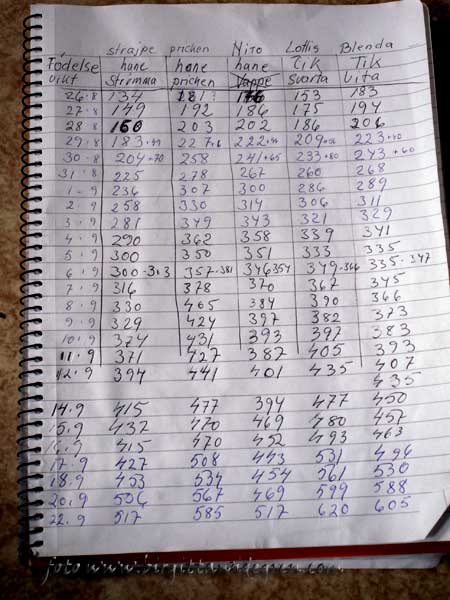 strajpe prichen Niro Lottis Blenda
Födelse hane hane hane Tik Tik
vikt Strimma prichen Vappe Svarta Vita
26.8 134 187 176 153 183
27.8 149 192 186 175 194
28.8 160 203 202 186 206
29.8 183 227 222 209 223
30.8 204+70 258 241+65 233+80 243+60
31.8 225 278 267 260 268
1.9 236 307 300 286 289
2.9 258 330 314 306 311
3.9 281 349 343 321 329
4.9 290 362 358 339 341
5.9 300 350 351 333 335
6.9 300-303 357-381 346354 349-366 335-347
7.9 316 378 370 367 345
8.9 330 405 384 390 366
9.9 329 424 397 382 373
10.9 374 431 393 397 383
11.9 371 427 382 405 393
12.9 394 441 401 435 407
435
14.9 415 477 394 477 450
15.9 432 470 469 480 457
16.9 415 470 452 493 463
17.9 427 508 443 531 496
18.9 453 534 454 561 530
20.9 506 567 469 599 588
22.9 517 585 517 620 605